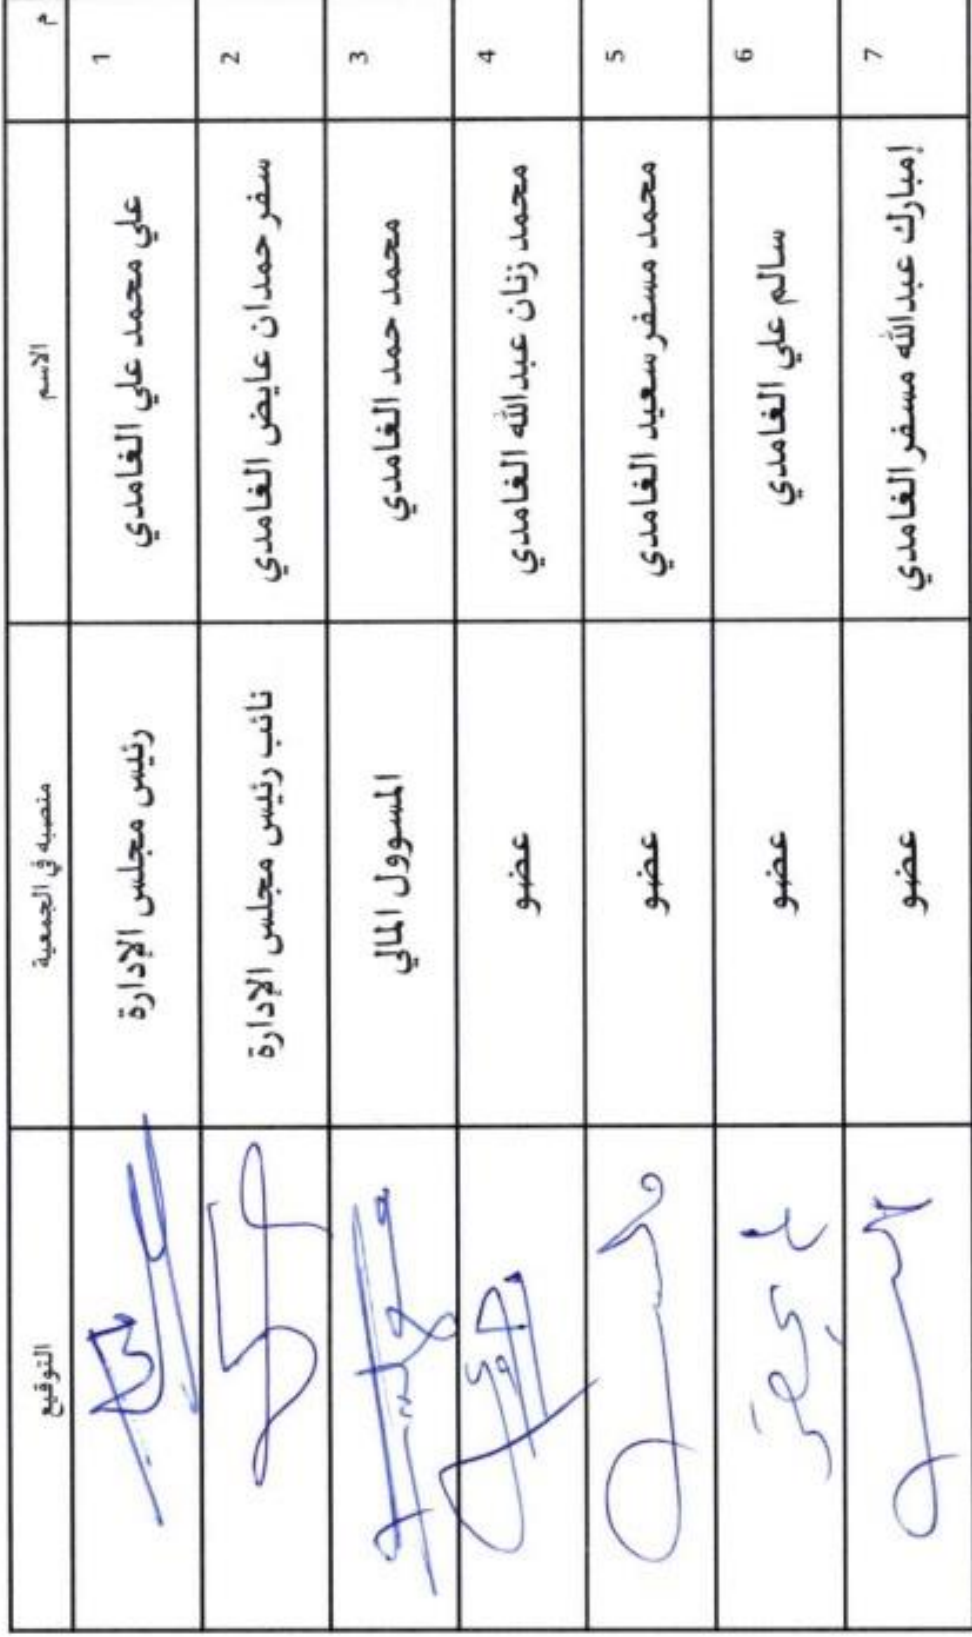 م الاسم منصبه في الجمعية التوقيع
1 علي محمد علي الغامدي رئيس مجلس الإدارة
2 سفر حمدان عايض الغامدي نائب رئيس مجلس الإدارة
3 محمد حمد الغامدي المسوول المالي
4 محمد زنان عبدالله الغامدي عضو
5 محمد مسفر سعيد الغامدي عضو
6 سالم علي الغامدي عضو
7 إمبارك عبدالله مسفر الغامدي عضو